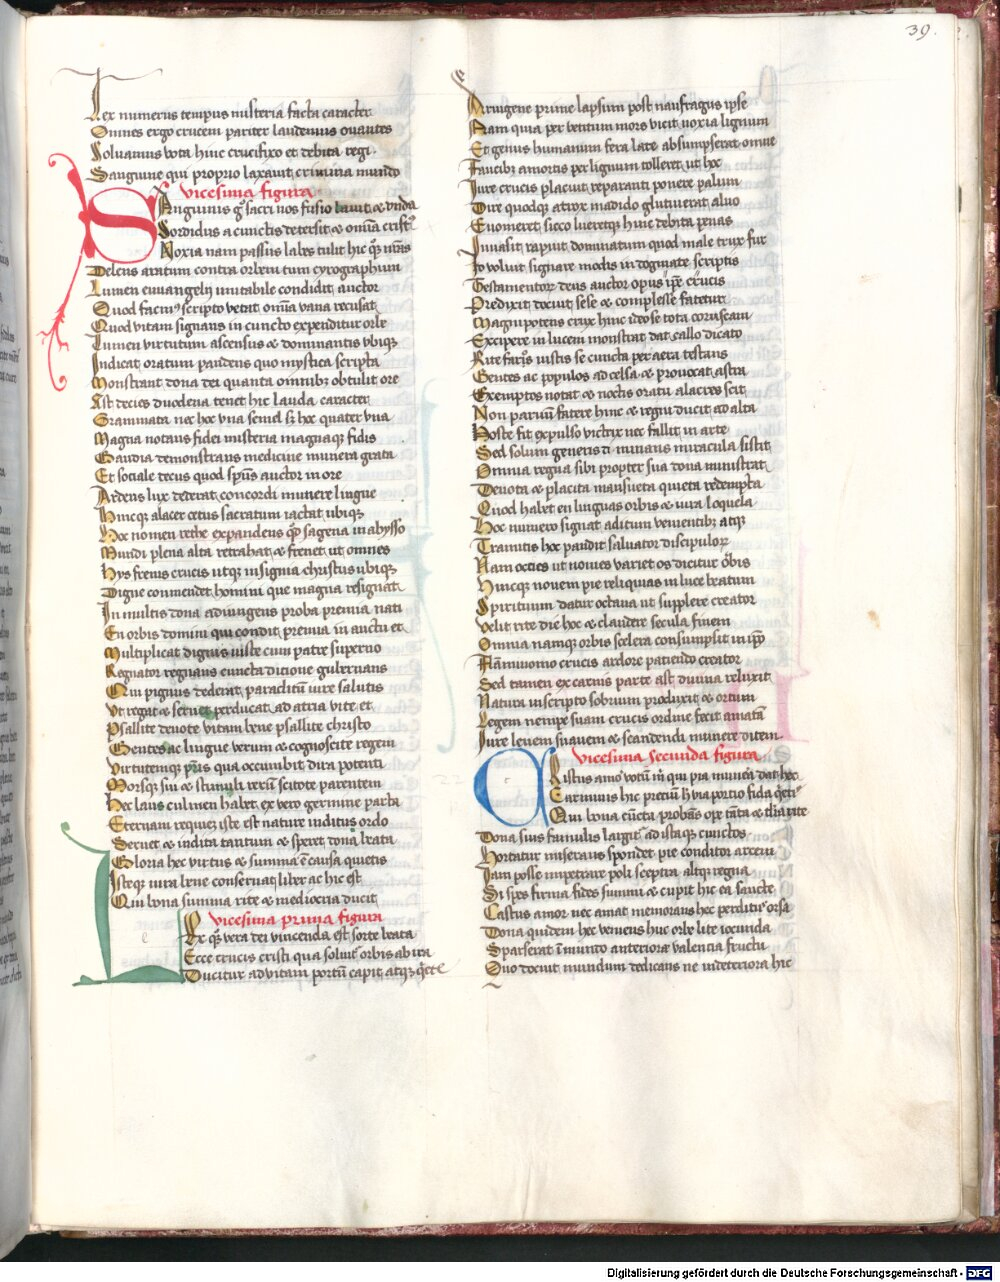 39.
Lex numerus tempus misteria facta caracter
Omnes ergo crucem pariter laudemus ouantes
Soluamus vota hinc crucifixo et debita regi.
Sanguine qui proprio laxauit crimina mundo
vicesima figura
Sanguinis g̊ sacri nos fusio lauit, &
Sordidus a cunctis detersit, & om̄ia
Noxia nam passus labes tulit hic
Delens aratum contra orbem tum cyrographum
Lumen euuangelij imitabile condidit, auctor
Quod scripto vetat, om̄ia vana recusat,
Quod vitam signans in cuncto expenditur orbe
Lumen virtutum ascensus & dominantis vbiqꝫ
Indicat, oratum pandens quo mystica scripta
Monstrant, dona dei quanta omnibꝫ obtulit ore
Ast decies duodena tenet hic lauda caracter
Grammata nec hoc vna semel sꝫ hoc quater vna
Magna notans fidei misteria magnaqꝫ fidis
Gaudia demonstrans medicine munera grata
Et sociale decus quod sp̄us auctor in ore
Ardens lux dederat, concordi munere lingue
Hincqꝫ alacer cetus sacratum iactat, vbiqꝫ
Hoc nomen rethe expandens qd̄ sagena in abysso
Mundi plena alta retrahat, & frenet, ut omnes
Hys frenis crucis vtqꝫ insignia christus vbiqꝫ
Digne commendet, homini que magna resignat,
In multis dona adiungens proba premia nati
En orbis domini qui condit, premia in auctu et
Multiplicat, dignis iuste cum patre superno
Regnator regnans cuncta dicione gubernans
Qui pignus dederat, paraclitū iure salutis
Vt regat, & seruet, perducat, ad atria vite et
Psallite deuote vitam bene psallite christo
Gentes ac lingue verum & cognoscite regem
Virtutemqꝫ pr̄is qua occumbit, dira potenti
Morsqꝫ sui & stimuli verū scitote parentem
Hec laus culmen habet, ex vero germine parta
Eternam requiez iste est nature inditus ordo
Seruet, & indita tantum & speret, dona beata
Gloria hec virtus & summa ē causa quietis
Isteqꝫ iura bene conseruat, liber ac hic est,
Qui bona summa rite & mediocria ducit,
vicesima prima figura
Lex qꝫ vera dei vincenda est, sorte beata
Ecce crucis cristi qua soluit orbis ab ira
Ducitur ad vitam portū capit, atqꝫ
Erugene prime lapsum post, naufragus ipse
Nam quia per vetitum mors vicit, noxia lignum
Et genus humanum fera late absumpserat, omne
Faucibꝫ amotis per lignum tolleret, ut hoc
Iure crucis placuit, reparanti ponere palum
Dire quodqꝫ atrox madido glutiuerat, aluo
Euomeret, sicco lueretqꝫ hinc debita penas
Inuasit, rapuit dominatum quod male trux fur
Io voluit signare modis in dogmate scriptis
Testamentoꝝ deus auctor opus ip̄e crucis
Predixit, docuit, sese & complesse fatetur
Magnipotens crux hinc ideo se tota coruscam
Excipere in lucem monstrat, dat, callo dicato
Rite iustis se cuncta per aera testans
Gentes ac populos ad celsa & prouocat, astra
Exemptos notat, & noctis oratu alacres scit,
Non paruū fatere hinc & regnū ducit, ad alta
Hoste sit, expulso victrix nec fallit, in arte
Sed solum generis d. miraculis miracula sistit,
Omnia regna sibi propter sua dona ministrat,
Deuota & placita mansueta quieta redempta
Quod habet, en linguas orbis & iura loquela
Hoc numero signat, aditum venientibꝫ atqꝫ
Tramitis hoc pandit, saluator discipuloꝝ
Nam octies ut nouies variet, os dicitur orbis
Hincqꝫ nouem pie reliquias in luce beatum
Spirituum datur octaua ut supplere creator
Velit, rite die hoc & claudere secula finem
Omnia namqꝫ orbis scelera consumpsit, in ip̄o
Flāmiuomo crucis ardore patiendo creator
Sed tamen ex carnis parte ast, diuina reluxit,
Natura inscripto sobrium produxit, & ortum
Legem nempe suam crucis ordine fecit, amatā
Iure leuem suauem & scandendi munere ditem
vicesima secunda figura
dat, hec
Carminis hic preciū portio fida
Qui bona cūcta
Dona suis famulis largit, ad istaqꝫ cunctos
Hortatur miserans spondet, pie conditor arcem
Iam posse impetrare poli sceptra, altqꝫ regna
Si spes firma fides summi & cupit, hic ea sancte
Castus amor nec amat, memorans hec perditur orsa
Dona quidem hec veniens huc orbe bite iocunda
Sparserat, ī mundo anteriora valentia fructu
Quo docuit, mundum dedicans ne indeteriora hic
Digitalisierung gefördert durch die Deutsche Forschungsgemeinschaft - DFG